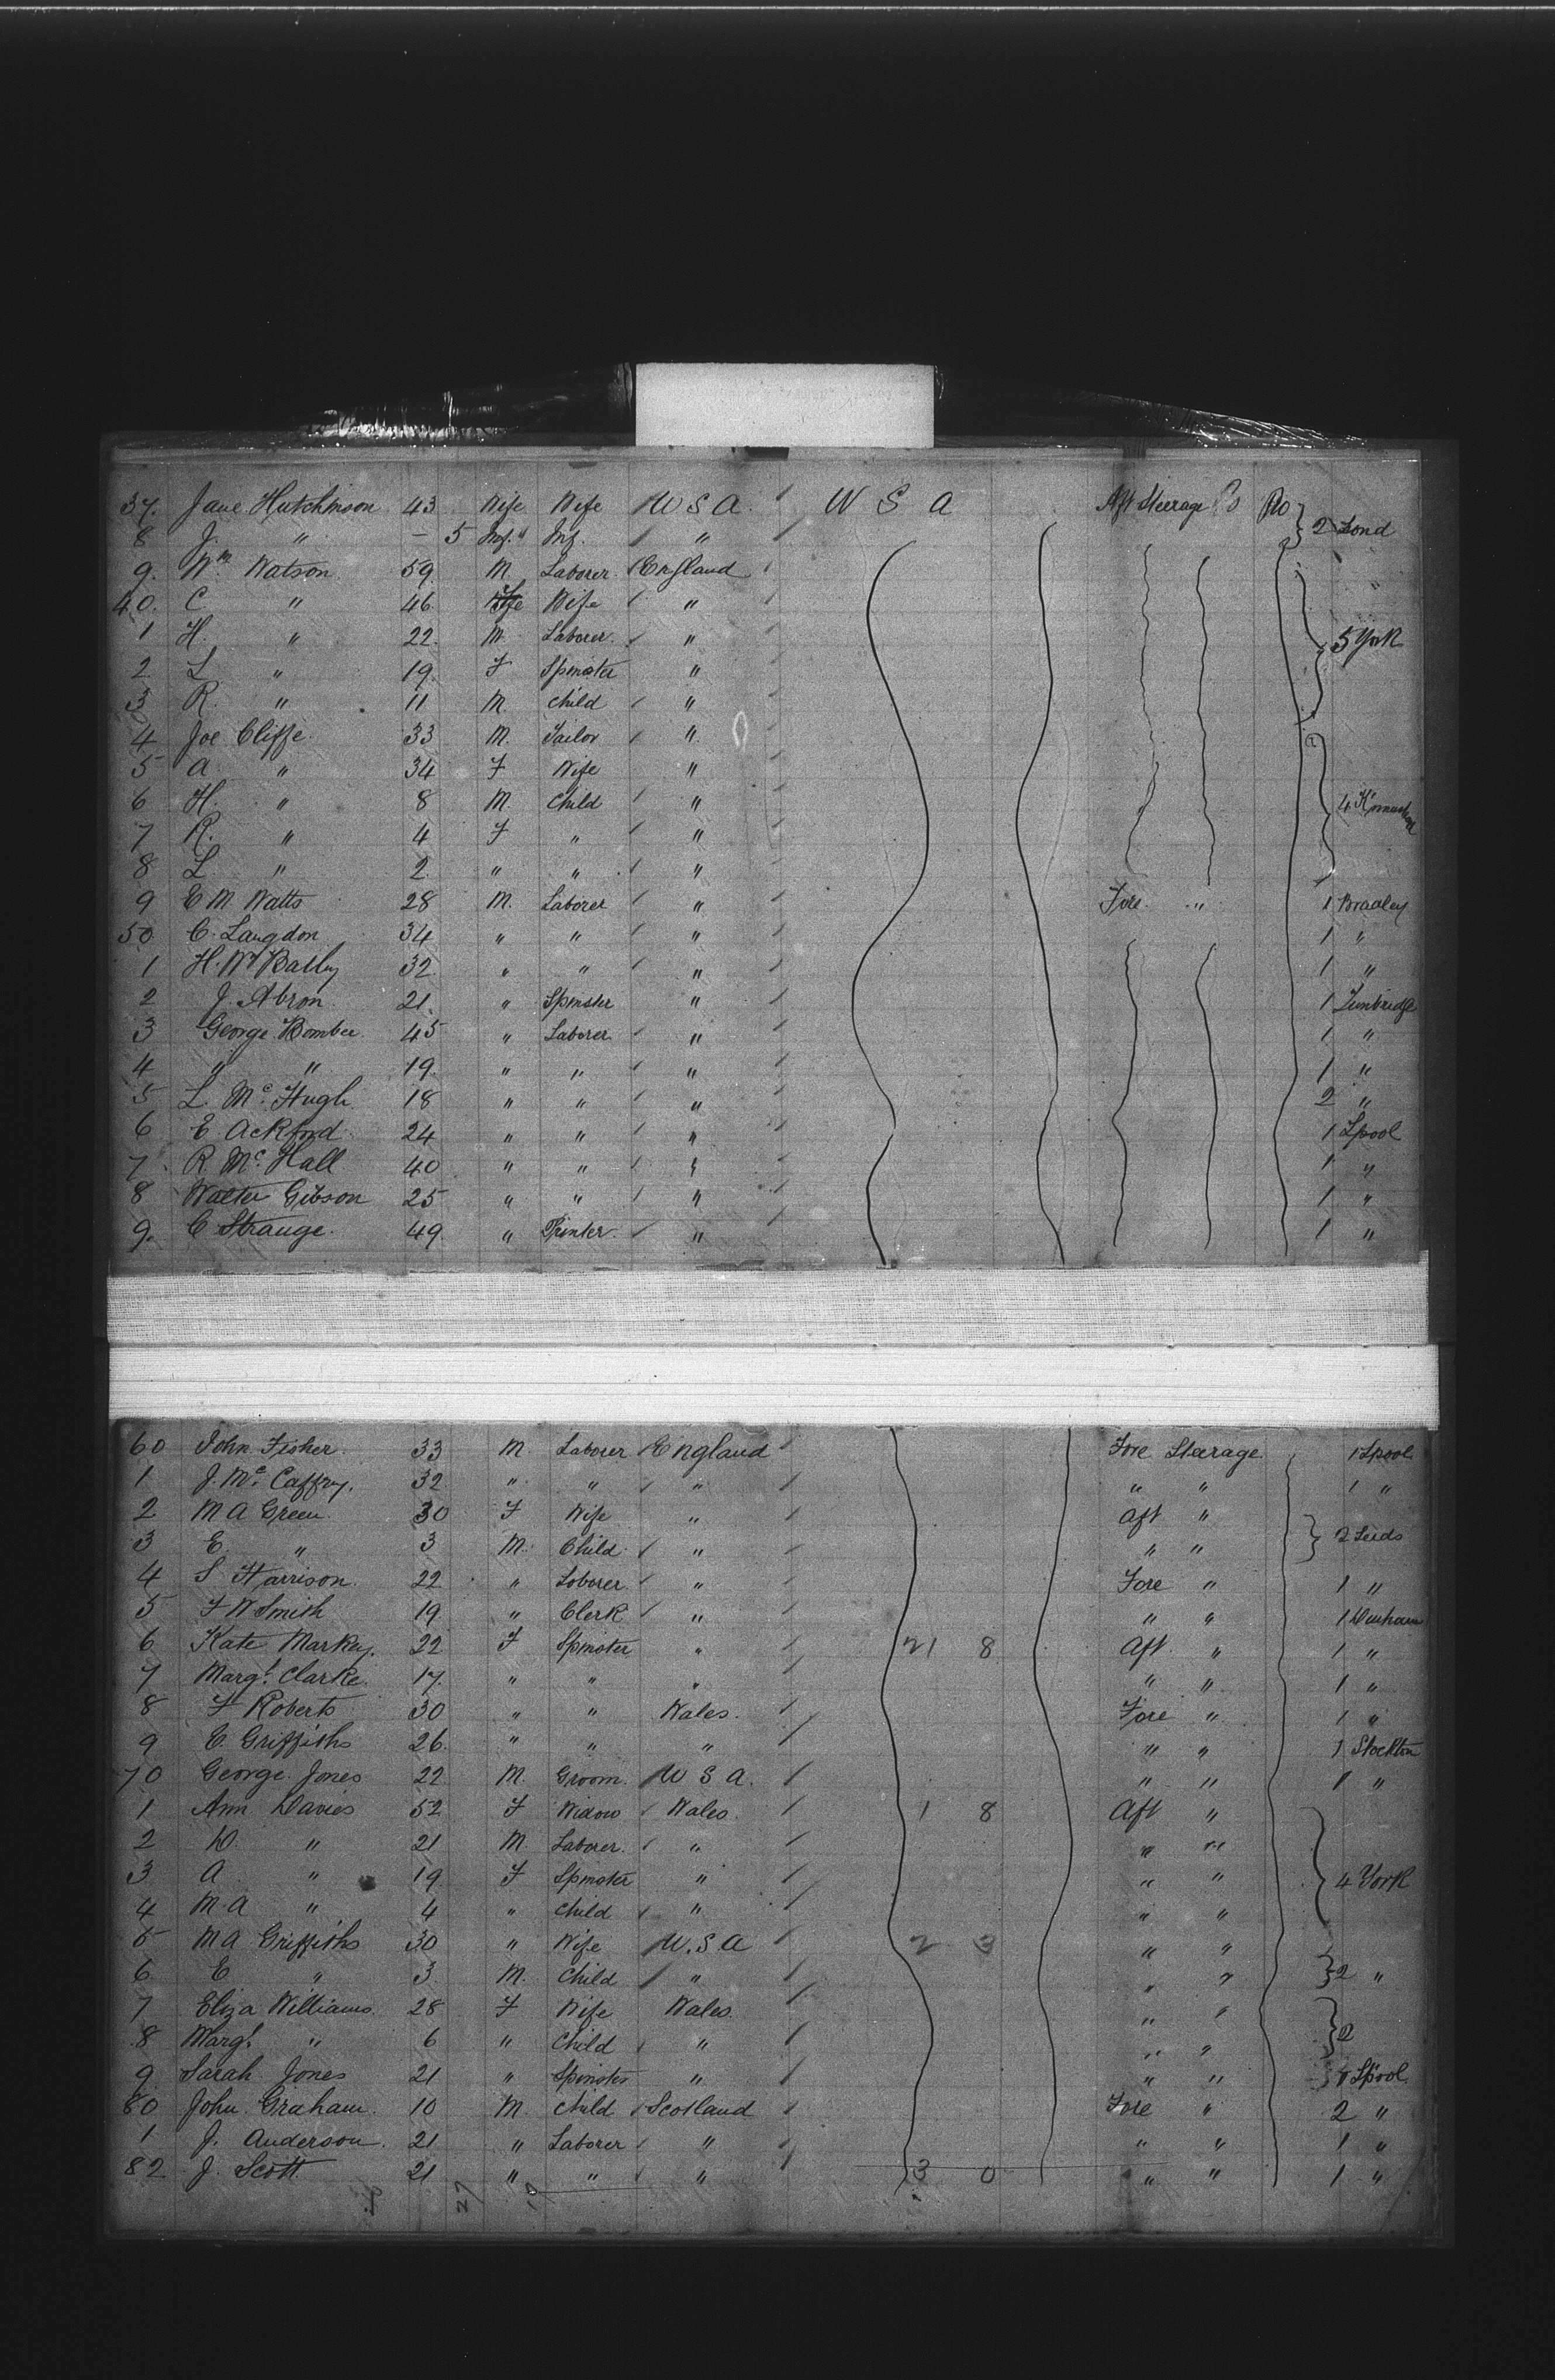 37. Jane Hutchinson 43 Wife Wife U S A. U S A Aft Steerage No
8 J. " - 5 Inf. Inf. " 2 Lond
9. Wm Watson 59 M Laborer England
40. C " 46 Wife "
1 H. " 22. M. Laborer. " 5 York
2 L " 19. F Spinster "
3 R. " 11 M Child "
4 Joe Cliffe. 33 M. Tailor "
5 A " 34 F Wife "
6 H. " 8 M. Child " 4
7 R. " 4 F " "
8 L " 2 " " "
9 E M Watts 28 M. Laborer " Fore " 1 Bradley
50 C. Langdon 34 " " " 1 "
1 H. W. Batly 32 " " " 1 "
2 J. Abron 21. " Spinster " 1 Tunbridge
3 George Bomber 45 " Laborer " 1 "
4 " " 19. " " " 1 "
5 L. Mc. Hugh 18 " " " 2 "
6 E Ackford 24 " " " 1 Lpool
7 R. Mc. Hall 40 " " " 1 "
8 Walter Gibson 25 " " " 1 "
9. C Strange. 49. " Printer. " 1 "
60 John Fisher. 33 M. Laborer England Fore Steerage 1 Lpool
1 J. Mc. Caffry. 32 " " " " " 1 "
2 M A Green 30 F Wife " Aft "
3 E. " 3 M. Child " " " 2 Leeds
4 S Harrison 22 " Laborer. " Fore " 1 "
5 F W Smith 19 " Clerk " " " 1 Durham
6 Kate Markey. 22 F Spinster " 21 8 Aft " 1 "
7 Margt. Clarke. 17. " " " " " 1 "
8 F Roberts 30 " " Wales. Fore " 1 "
9 E. Griffiths 26. " " " " " 1 Stockton
70 George Jones 22 M. Groom. U S A. " " 1 "
1 Ann Davies 52 F Widow Wales. 1 8 Aft "
2 D. " 21 M Laborer. " " "
3 A " 19 F Spinster " " " 4 York
4 M. A " 4 " Child " " "
5 M A Griffiths 30 " Wife U. S A 2 3 " "
6 E " 3. M. Child " " " 2 "
7 Eliza Williams. 28 F Wife Wales. " "
8 Margt. " 6 " Child " " " 2
9 Sarah Jones 21 " Spinster " " " 1 Lpool
80 John Graham. 10 M. Child Scotland Fore " 2 "
1 J. Anderson. 21 " Laborer " " " 1 "
82 J. Scott 21 " " " 3 0 " " 1 "